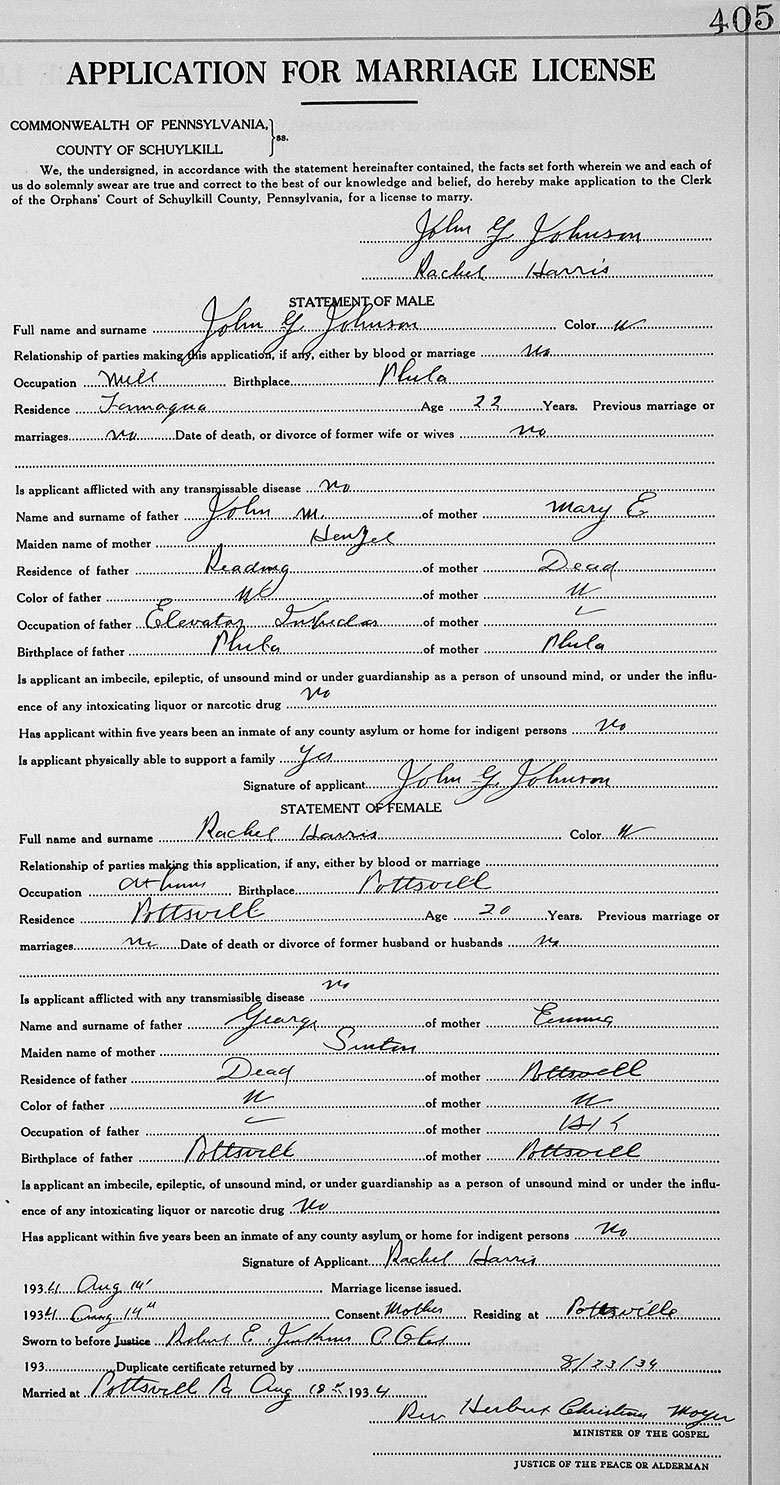 405
APPLICATION FOR MARRIAGE LICENSE
COMMONWEALTH OF PENNSYLVANIA,
COUNTY OF SCHUYLKILL } ss.
We, the undersigned, in accordance with the statement hereinafter contained, the facts set forth wherein we and each of
us do solemnly swear are true and correct to the best of our knowledge and belief, do hereby make application to the Clerk
of the Orphans' Court of Schuylkill County, Pennsylvania, for a license to marry.
John G Johnson
Rachel Harris
STATEMENT OF MALE
Full name and surname John G Johnson Color W
Relationship of parties making this application, if any, either by blood or marriage no
Occupation Mill Birthplace Phila
Residence Tamaqua Age 22 Years. Previous marriage or
marriages no Date of death, or divorce of former wife or wives no
Is applicant afflicted with any transmissable disease no
Name and surname of father John M. of mother Mary E
Maiden name of mother Henzel
Residence of father Reading of mother Dead
Color of father W of mother W
Occupation of father Elevator of mother
Birthplace of father Phila of mother Phila
Is applicant an imbecile, epileptic, of unsound mind or under guardianship as a person of unsound mind, or under the influ-
ence of any intoxicating liquor or narcotic drug no
Has applicant within five years been an inmate of any county asylum or home for indigent persons no
Is applicant physically able to support a family yes
Signature of applicant John G Johnson
STATEMENT OF FEMALE
Full name and surname Rachel Harris Color W
Relationship of parties making this application, if any, either by blood or marriage
Occupation at home Birthplace Pottsvill
Residence Pottsvill Age 20 Years. Previous marriage or
marriages no Date of death or divorce of former husband or husbands no
Is applicant afflicted with any transmissible disease no
Name and surname of father George of mother Emma
Maiden name of mother
Residence of father Dead of mother Pottsvill
Color of father W of mother W
Occupation of father of mother
Birthplace of father Pottsvill of mother Pottsvill
Is applicant an imbecile, epileptic, of unsound mind, or under guardianship as a person of unsound mind or under the influ-
ence of any intoxicating liquor or narcotic drug No
Has applicant within five years been an inmate of any county asylum or home for indigent persons No
Signature of Applicant Rachel Harris
1934 Aug 14" Marriage license issued.
1934 Aug 14" Consent Mother Residing at Pottsville
Sworn to before Justice Robert E. Jenkins
193 Duplicate certificate returned by 8/23/34
Married at Pottsvill Pa Aug 18 1934
Rev Herbert Christian Moyer
MINISTER OF THE GOSPEL
JUSTICE OF THE PEACE OR ALDERMAN